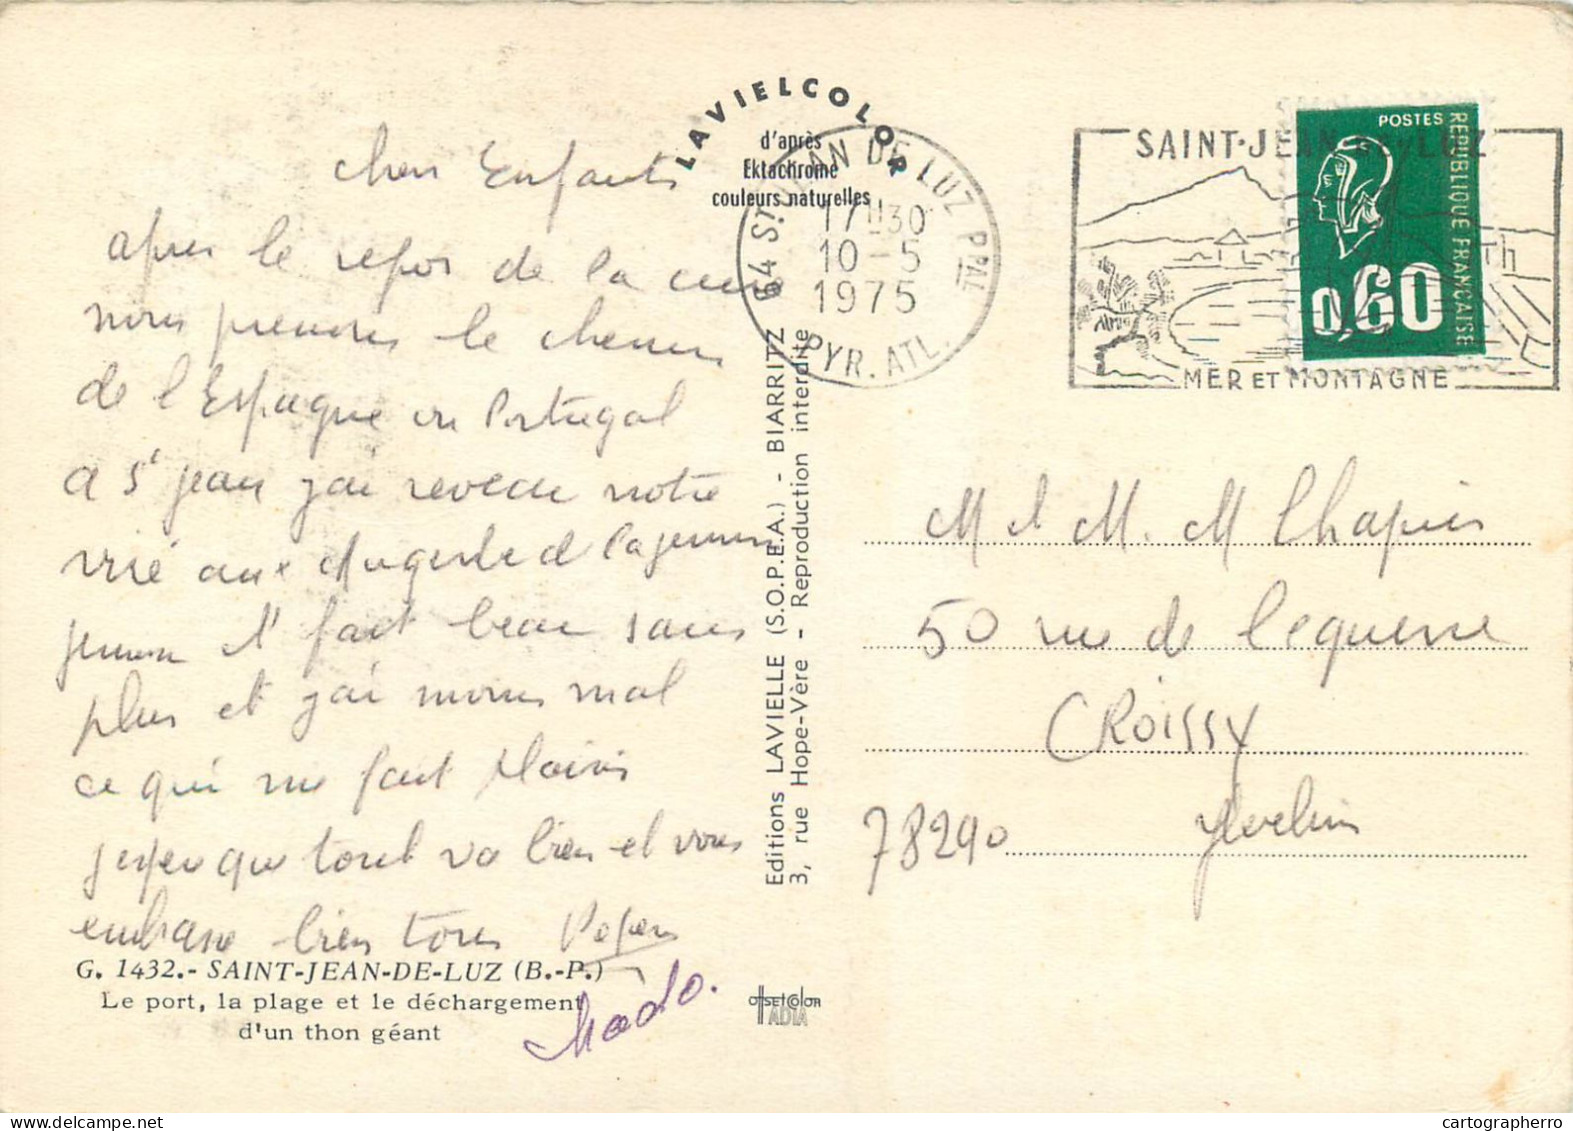 LAVIELCOLOR
d'après
Ektachrome
couleurs naturelles
chers Enfants
apres le repos de la cure
nous prenons le chemin
de l'Espagne ou Portugal
a St jean j'ai revecu notre
aux et
jeunesse il fait beau sans
plus et j'ai moins mal
ce qui me fait plaisir
j'espere que tout va bien et vous
embrasse bien tous
Mado.
G. 1432.- SAINT-JEAN-DE-LUZ (B.-P.)
Le port, la plage et le déchargement
d'un thon géant
Editions LAVIELLE (S.O.P.E.A.) - BIARRITZ
3, rue Hope-Vère - Reproduction interdite
OffSETCOlOR
IADIA
64 ST JEAN DE LUZ PPAL
17H30
10-5
1975
PYR. ATL.
SAINT-JEAN de LUZ
MER ET MONTAGNE
POSTES
REPUBLIQUE FRANCAISE
0,60
M et M. M Chapuis
50 rue de l'equerre
CROISSY
78290 Yvelines
cartographerro